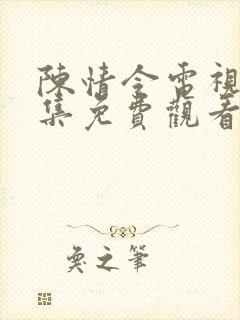 陳情令電視
集免費觀看
奐之筆